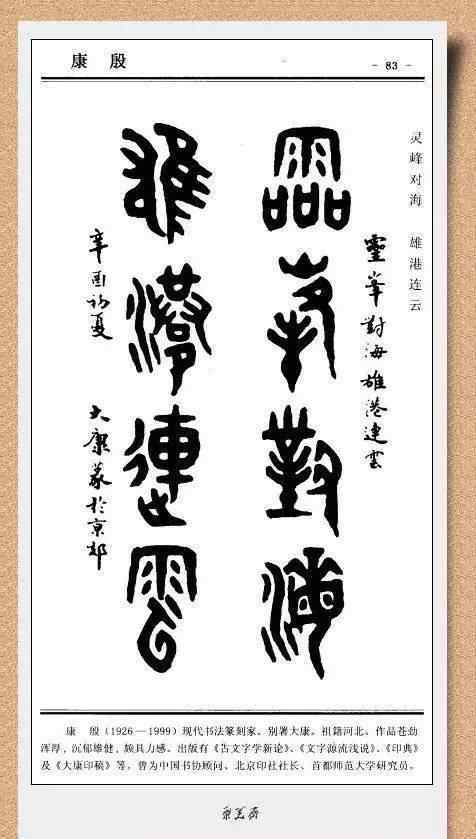 康 殷
- 83 -
灵峰对海 雄港连云
靈峯對海雄港連雲
靈峯對海
雄港連雲
辛酉初夏 大康篆於京郊
康 殷(1926—1999)现代书法篆刻家。别署大康。祖籍河北。作品苍劲
浑厚,沉郁雄健,颇具力感。出版有《古文字学新论》、《文字源流浅说》、《印典》
及《大康印稿》等。曾为中国书协顾问、北京印社社长、首都师范大学研究员。